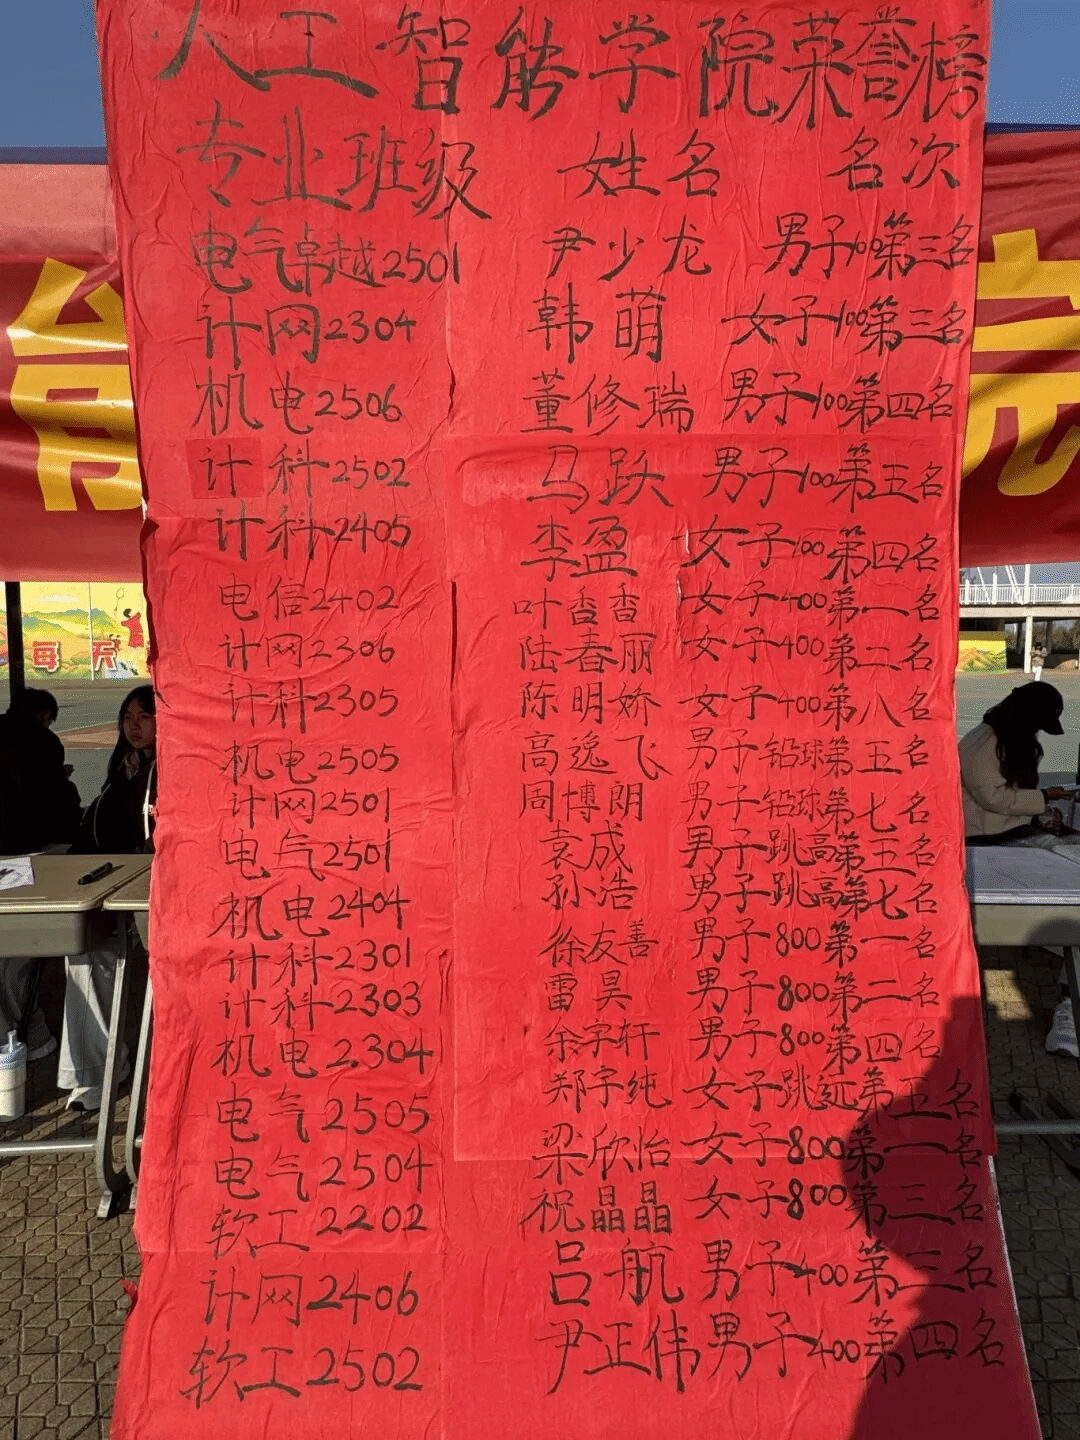 人工智能学院荣誉榜
专业班级 姓名 名次
电气卓越2501 尹少龙 男子100第三名
计网2304 韩萌 女子100第三名
机电2506 董修瑞 男子100第四名
计科2502 马跃 男子100第五名
计科2405 李盈 女子100第四名
电信2402 叶香香 女子400第一名
计网2306 陆春丽 女子400第二名
计科2305 陈明娇 女子400第八名
机电2505 高逸飞 男子铅球第五名
计网2501 周博朗 男子铅球第七名
电气2501 袁成 男子跳高第五名
机电2404 孙浩 男子跳高第七名
计科2301 徐友善 男子800第一名
计科2303 雷昊 男子800第二名
机电2304 余宇轩 男子800第四名
电气2505 郑宇纯 女子跳远第五名
电气2504 梁欣怡 女子800第一名
软工2202 祝晶晶 女子800第三名
计网2406 吕航 男子400第三名
软工2502 尹正伟 男子400第四名
能
每天